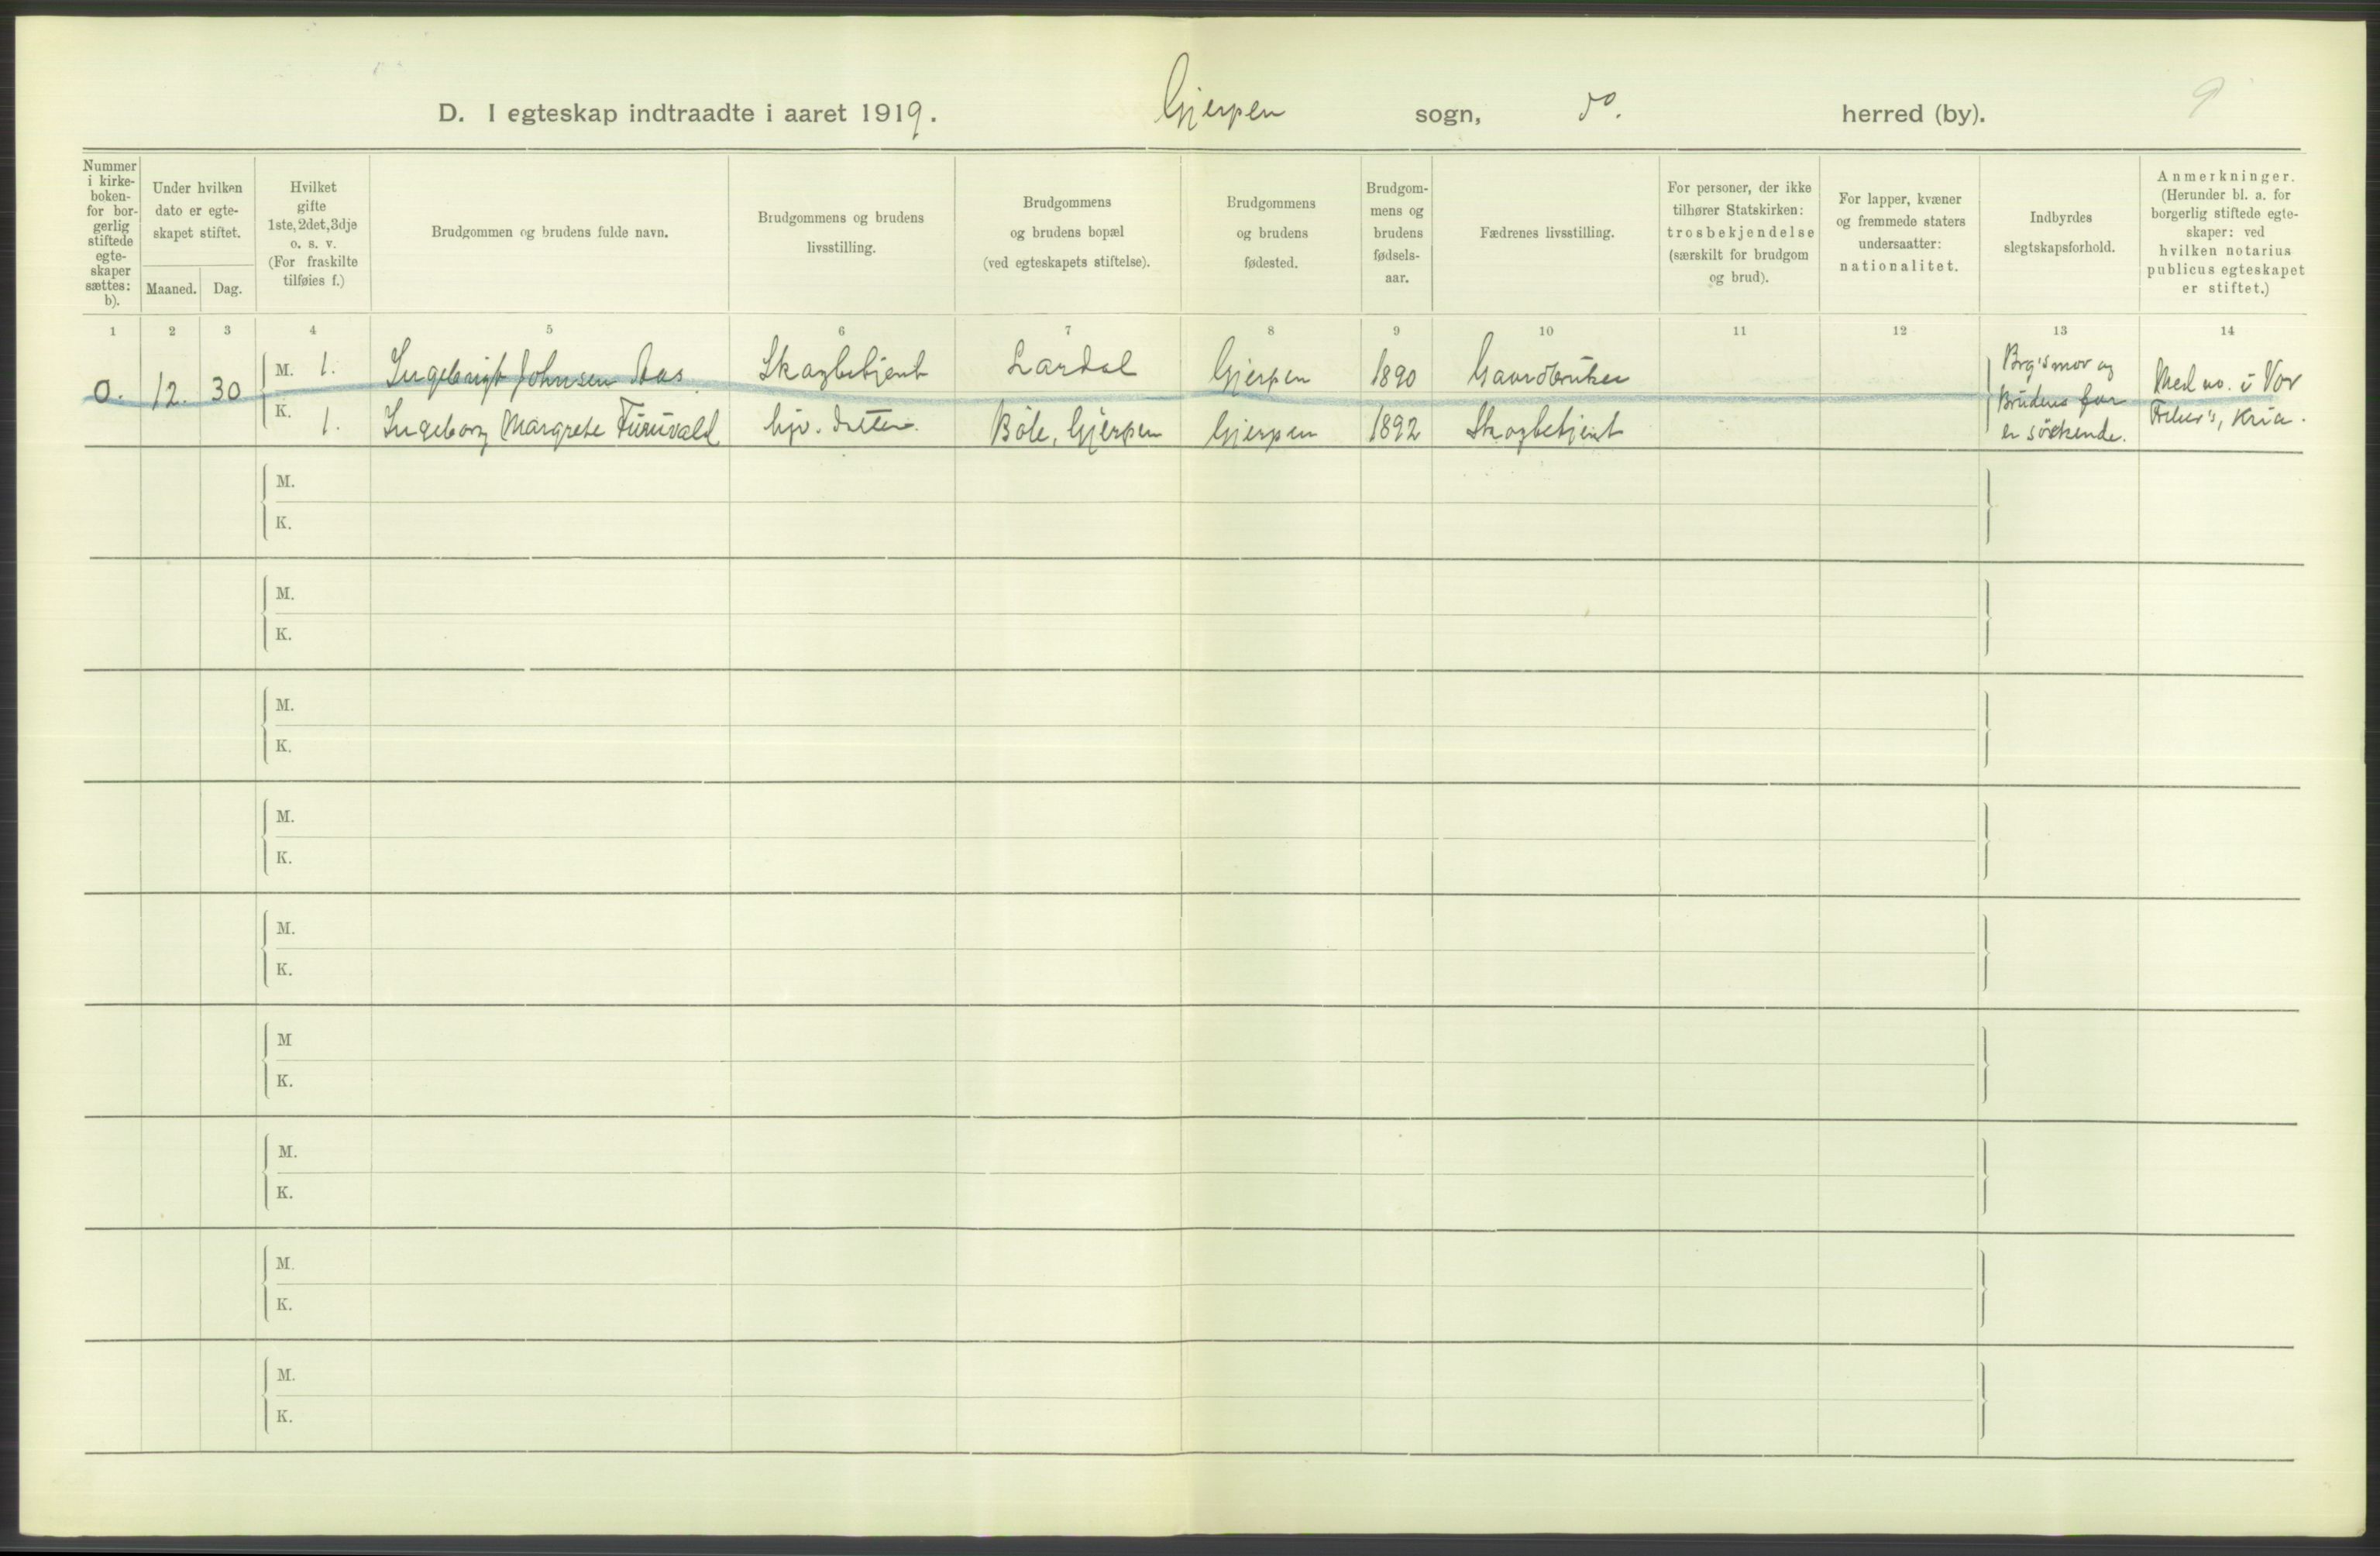 D. I egteskap indtraadte i aaret 1919. Gjerpen sogn, do. herred (by). 9
Nummer i kirke-boken- for bor-gerlig stiftede egte-skaper sættes: b).
Under hvilken dato er egte-skapet stiftet.
Maaned. Dag.
Hvilket gifte 1ste, 2det, 3dje o. s. v. (For fraskilte tilføies f.)
Brudgommen og brudens fulde navn.
Brudgommens og brudens livsstilling.
Brudgommens og brudens bopæl (ved egteskapets stiftelse).
Brudgommens og brudens fødested.
Brudgom-mens og brudens fødsels-aar.
Fædrenes livsstilling.
For personer, der ikke tilhører Statskirken: trosbekjendelse (særskilt for brudgom og brud).
For lapper, kvæner og fremmede staters undersaatter: nationalitet.
Indbyrdes slegtskapsforhold.
Anmerkninger. (Herunder bl. a. for borgerlig stiftede egte-skaper: ved hvilken notarius publicus egteskapet er stiftet.)
1 2 3 4 5 6 7 8 9 10 11 12 13 14
0. 12. 30
M. 1. Ingebrigt Johnsen Aas Skogbetjent Lardal Gjerpen 1890 Gaardbruker
K. 1. Ingeborg Margrete Furuvald hjv. datter. Böle, Gjerpen Gjerpen 1892 Skogbetjent
Brg's mor og
Brudens far
er söskende.
Med no. i Vor
Frelser's, Kria.
M.
K.
M.
K.
M.
K.
M.
K.
M.
K.
M
K.
M.
K.
M.
K.
M.
K.